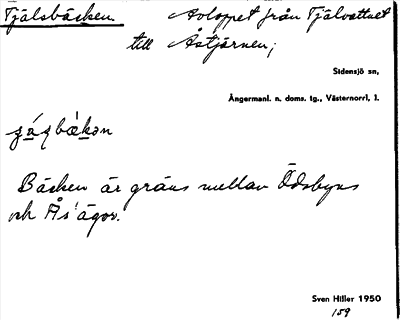 Tjälsbäcken Avloppet från Tjälvattnet
till Åstjärnen;
Sidensjö sn,
Ångermanl. n. doms. tg., Västernorrl, l.
Bäcken är gräns mellan Ödsbyns
och Ås' ägor.
Sven Hiller 1950
159